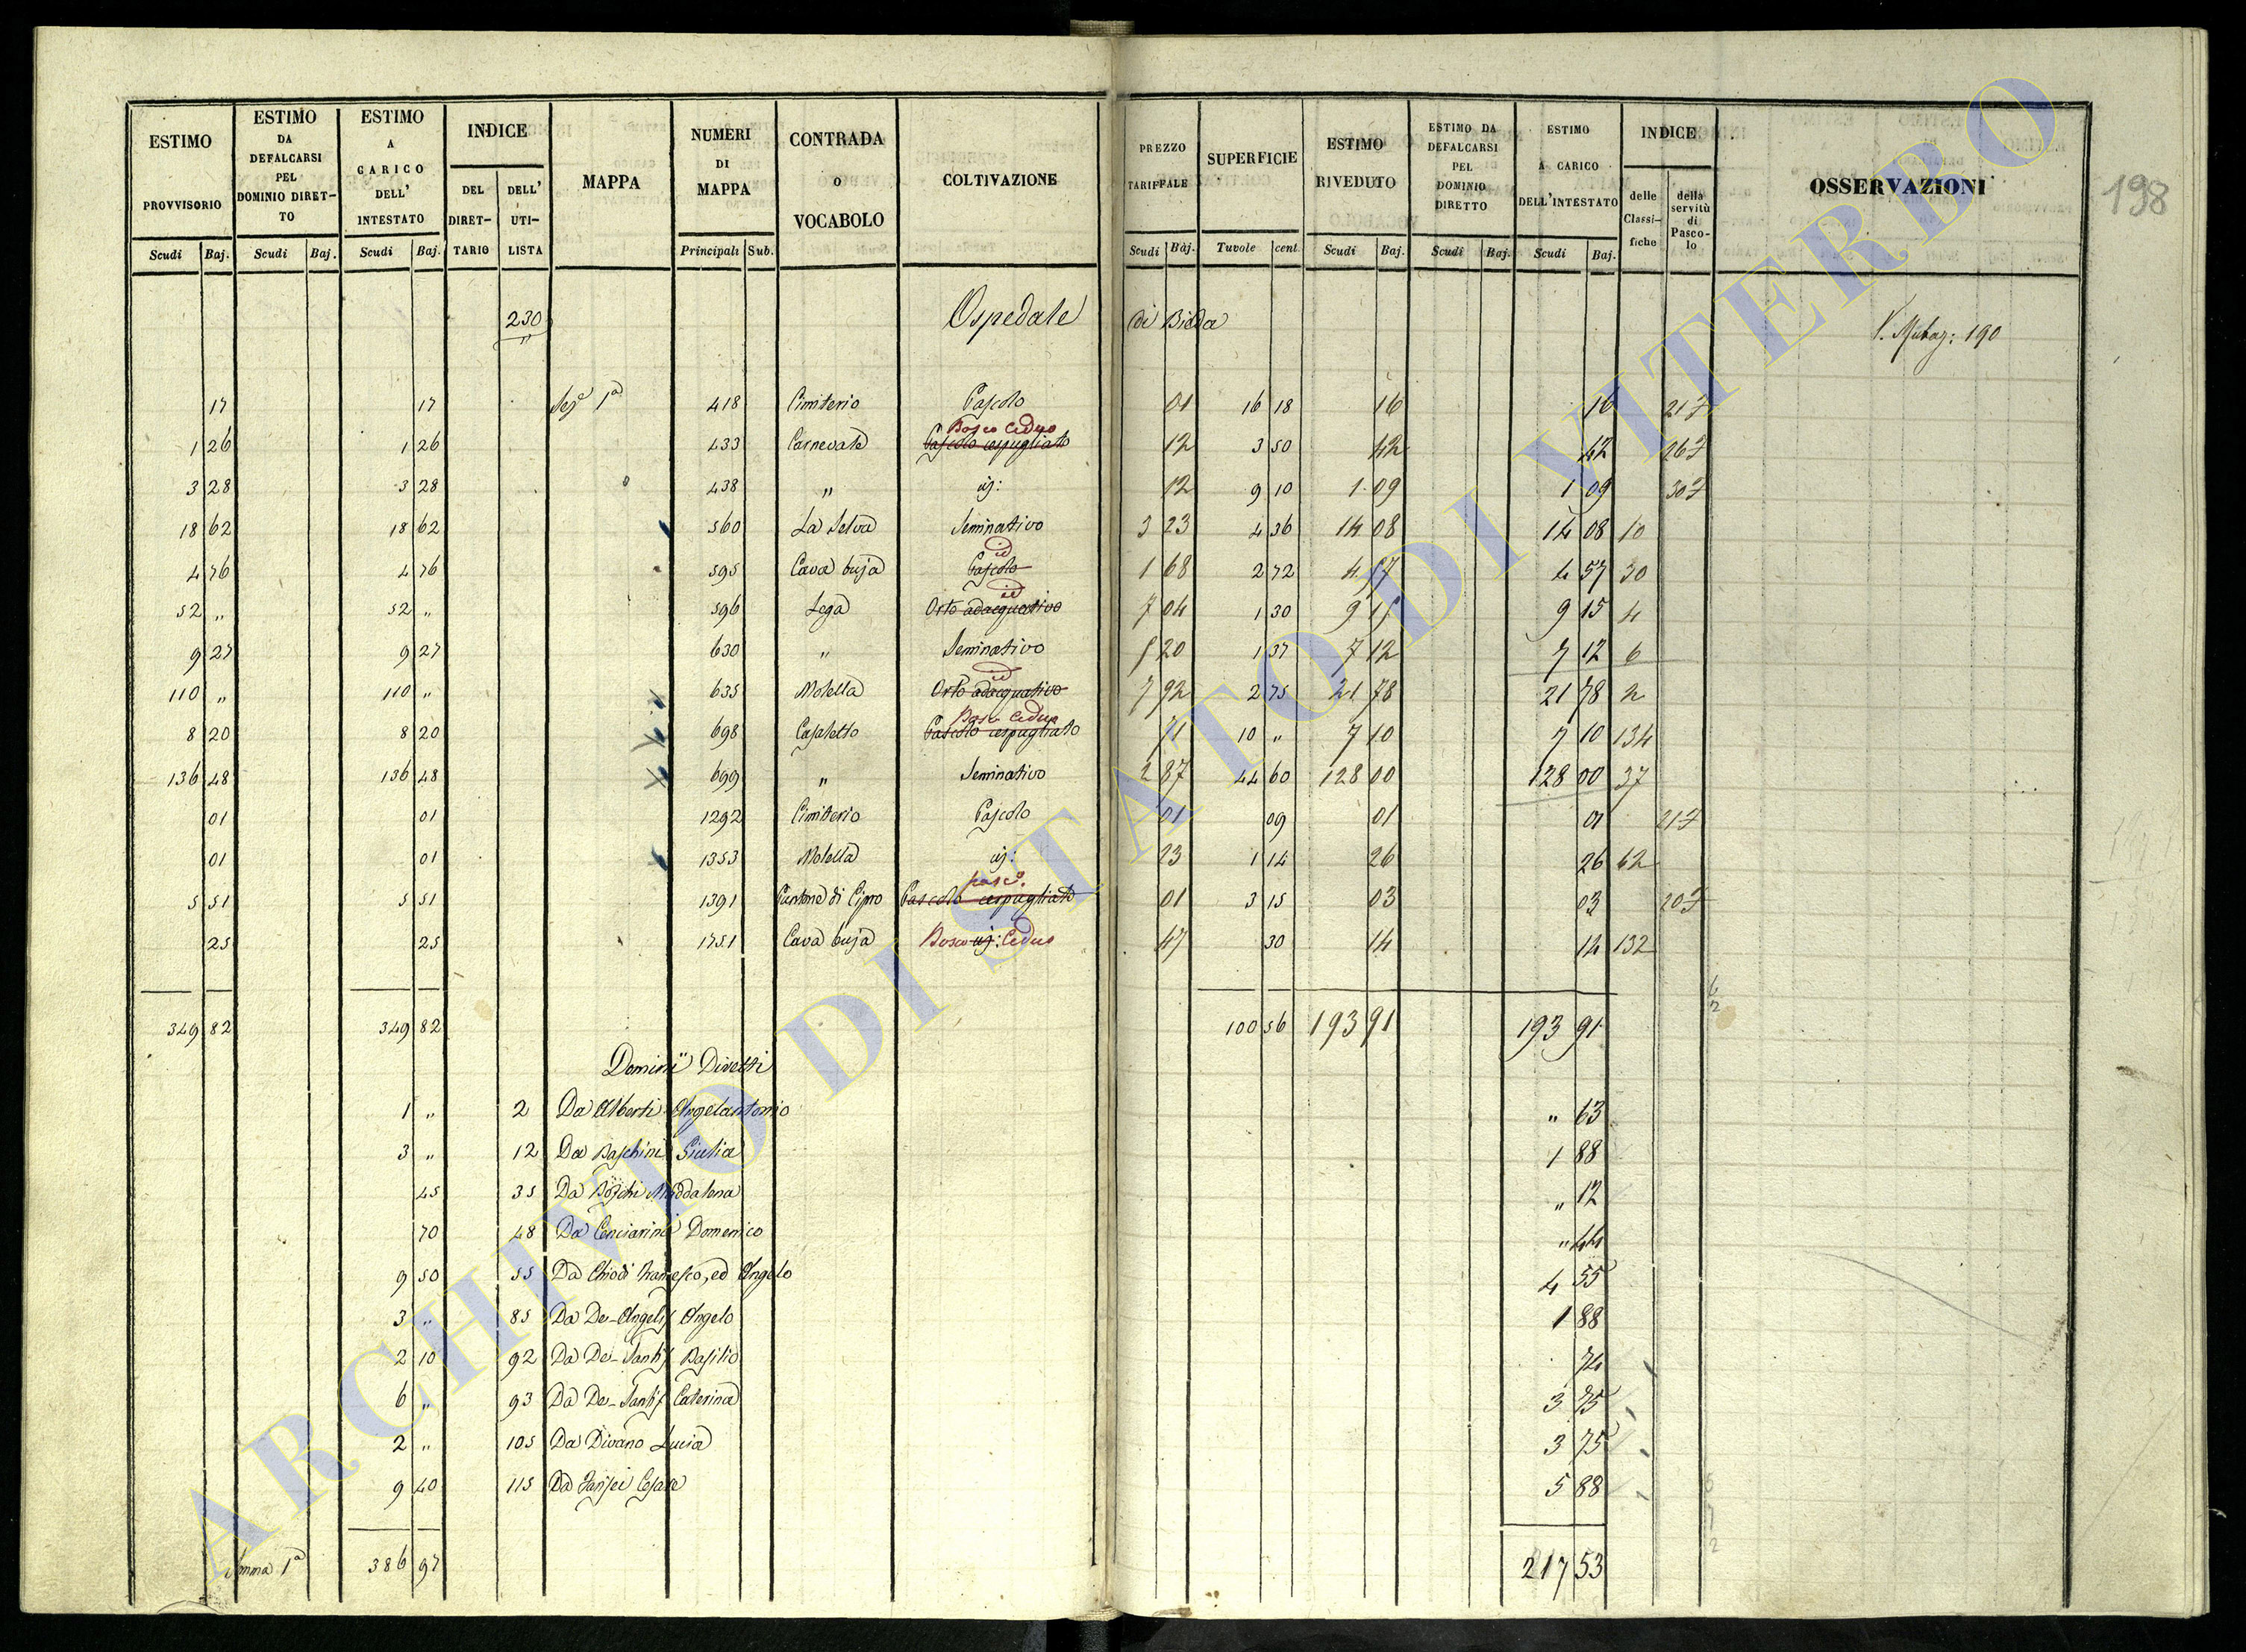 ESTIMO PROVVISORIO | ESTIMO DA DEFALCARSI PEL DOMINIO DIRETTO | ESTIMO A CARICO DELL' INTESTATO | INDICE DEL DIRETTARIO | DELL' UTILISTA | MAPPA | NUMERI DI MAPPA | CONTRADA O VOCABOLO | COLTIVAZIONE | PREZZO TARIFFALE | SUPERFICIE | ESTIMO RIVEDUTO | ESTIMO DA DEFALCARSI PEL DOMINIO DIRETTO | ESTIMO A CARICO DELL'INTESTATO | INDICE delle Classifiche | della servitù di Pascolo | OSSERVAZIONI
Scudi Baj. | Scudi Baj. | Scudi Baj. | Principali Sub. | Scudi Baj. | Tavole cent. | Scudi Baj. | Scudi Baj. | Scudi Baj.
198
230 Ospedale di Bieda
190
17 | 17 | Sez.e 1a | 418 | Cimiterio | Pascolo | 01 | 16 18 | 16 | 16 | 217
1 26 | 1 26 | 433 | Carnevale | Pascolo cespugliato Bosco Ceduo | 12 | 3 50 | 42 | 42 | 267
3 28 | 3 28 | 438 | " | id: | 12 | 9 10 | 1 09 | 1 09 | 307
18 62 | 18 62 | 560 | La Selva | Seminativo | 3 23 | 4 36 | 14 08 | 14 08 | 10
4 76 | 4 76 | 595 | Cava buja | Pascolo id | 1 68 | 2 72 | 4 57 | 4 57 | 30
52 " | 52 " | 596 | Lega | Orto adacquativo id | 7 04 | 1 30 | 9 15 | 9 15 | 4
9 27 | 9 27 | 630 | " | Seminativo | 5 20 | 1 37 | 7 12 | 7 12 | 6
110 " | 110 " | 635 | Motella | Orto adacquativo id | 7 92 | 2 75 | 21 78 | 21 78 | 2
8 20 | 8 20 | 698 | Casaletto | Pascolo cespugliato Bosco Ceduo | 71 | 10 " | 7 10 | 7 10 | 134
136 48 | 136 48 | 699 | " | Seminativo | 2 87 | 44 60 | 128 00 | 128 00 | 37
01 | 01 | 1292 | Cimiterio | Pascolo | 01 | 09 | 01 | 01 | 217
01 | 01 | 1353 | Motella | id: | 23 | 1 14 | 26 | 26 | 62
5 51 | 5 51 | 1391 | Cantone di Cipro | Pascolo cespugliato pasco. | 01 | 3 15 | 03 | 03 | 207
25 | 25 | 1751 | Cava buja | Bosco id: Ceduo | 47 | 30 | 14 | 14 | 132
349 82 | 349 82 | 100 56 | 193 91 | 193 91
Dominii Diretti
1 " | 2 | Da Alberti Angelantonio | " 63
3 " | 12 | Da Baschini Giulia | 1 88
45 | 35 | Da Boschi Maddalena | " 12
70 | 48 | Da Cenciarini Domenico | " 44
9 50 | 55 | Da Chiodi Francesco, ed Angelo | 4 55
3 " | 85 | Da De-Angelis Angelo | 1 88
2 10 | 92 | Da De-Santis Basilio | 74
6 " | 93 | Da De-Santis Caterina | 3 75
2 " | 105 | Da Divano Lucia | 3 75
9 40 | 115 | Da Cesare | 5 88
Somma 1a | 386 97 | 217 53
ARCHIVIO DI STATO DI VITERBO